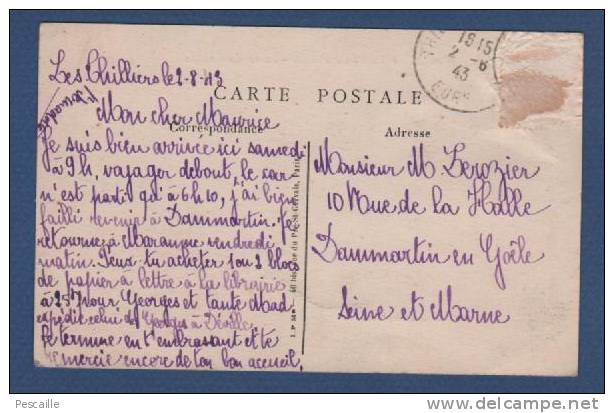 Les Thilliers le 2-8-43
CARTE POSTALE
Mon cher Maurice
Correspondance
Adresse
Je suis bien arrivée ici samedi
à 9h, voyager debout, le car
n'est parti qu'à 6h10, j'ai bien
failli revenir à Dammartin. Je
retourne à Maromme vendredi
matin. Peux tu acheter 2 blocs
de papier à lettre à la librairie
à 25f pour Georges et tante Mad
expédie celui de Georges à Déville
Je termine en t'embrassant et te
remercie encore de ton bon accueil.
Monsieur M Lerozier
10 Rue de la Halle
Dammartin en Goële
Seine et Marne
1815
2 -8
43
EURE
Pescaille
www.delcampe.net